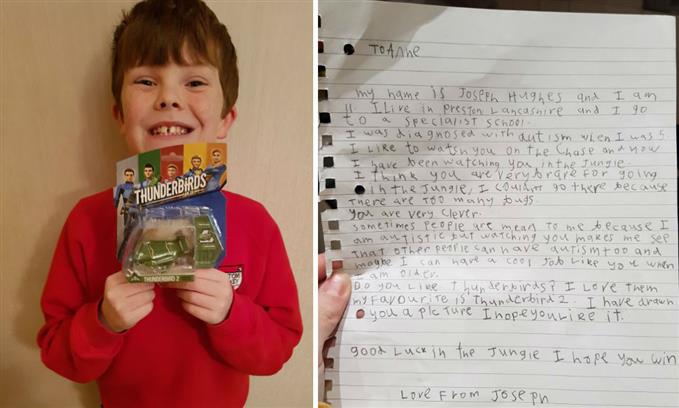 THUNDERBIRDS
THUNDERBIRD 2
TO Anne
my name is Joseph Hughes and I am
11. I live in preston Lancashire and I go
to a specialist school.
I was diagnosed with autism when I was 5
I like to watsh you on the Chase and now
I have been watching you in the Jungle.
I think you are very brave for going
in the Jungle, I could not go there because
there are too many bugs.
you are very clever.
sometimes people are mean to me because I
am autistic but watching you makes me see
that other people can have autism too and
maybe I can have a cool Job like you when
I am older.
Do you like Thunderbirds? I Love them
my favourite is Thunderbird 2. I have drawn
you a picture I hope you like it.
good Luck in the Jungle I hope you win
Love From Joseph